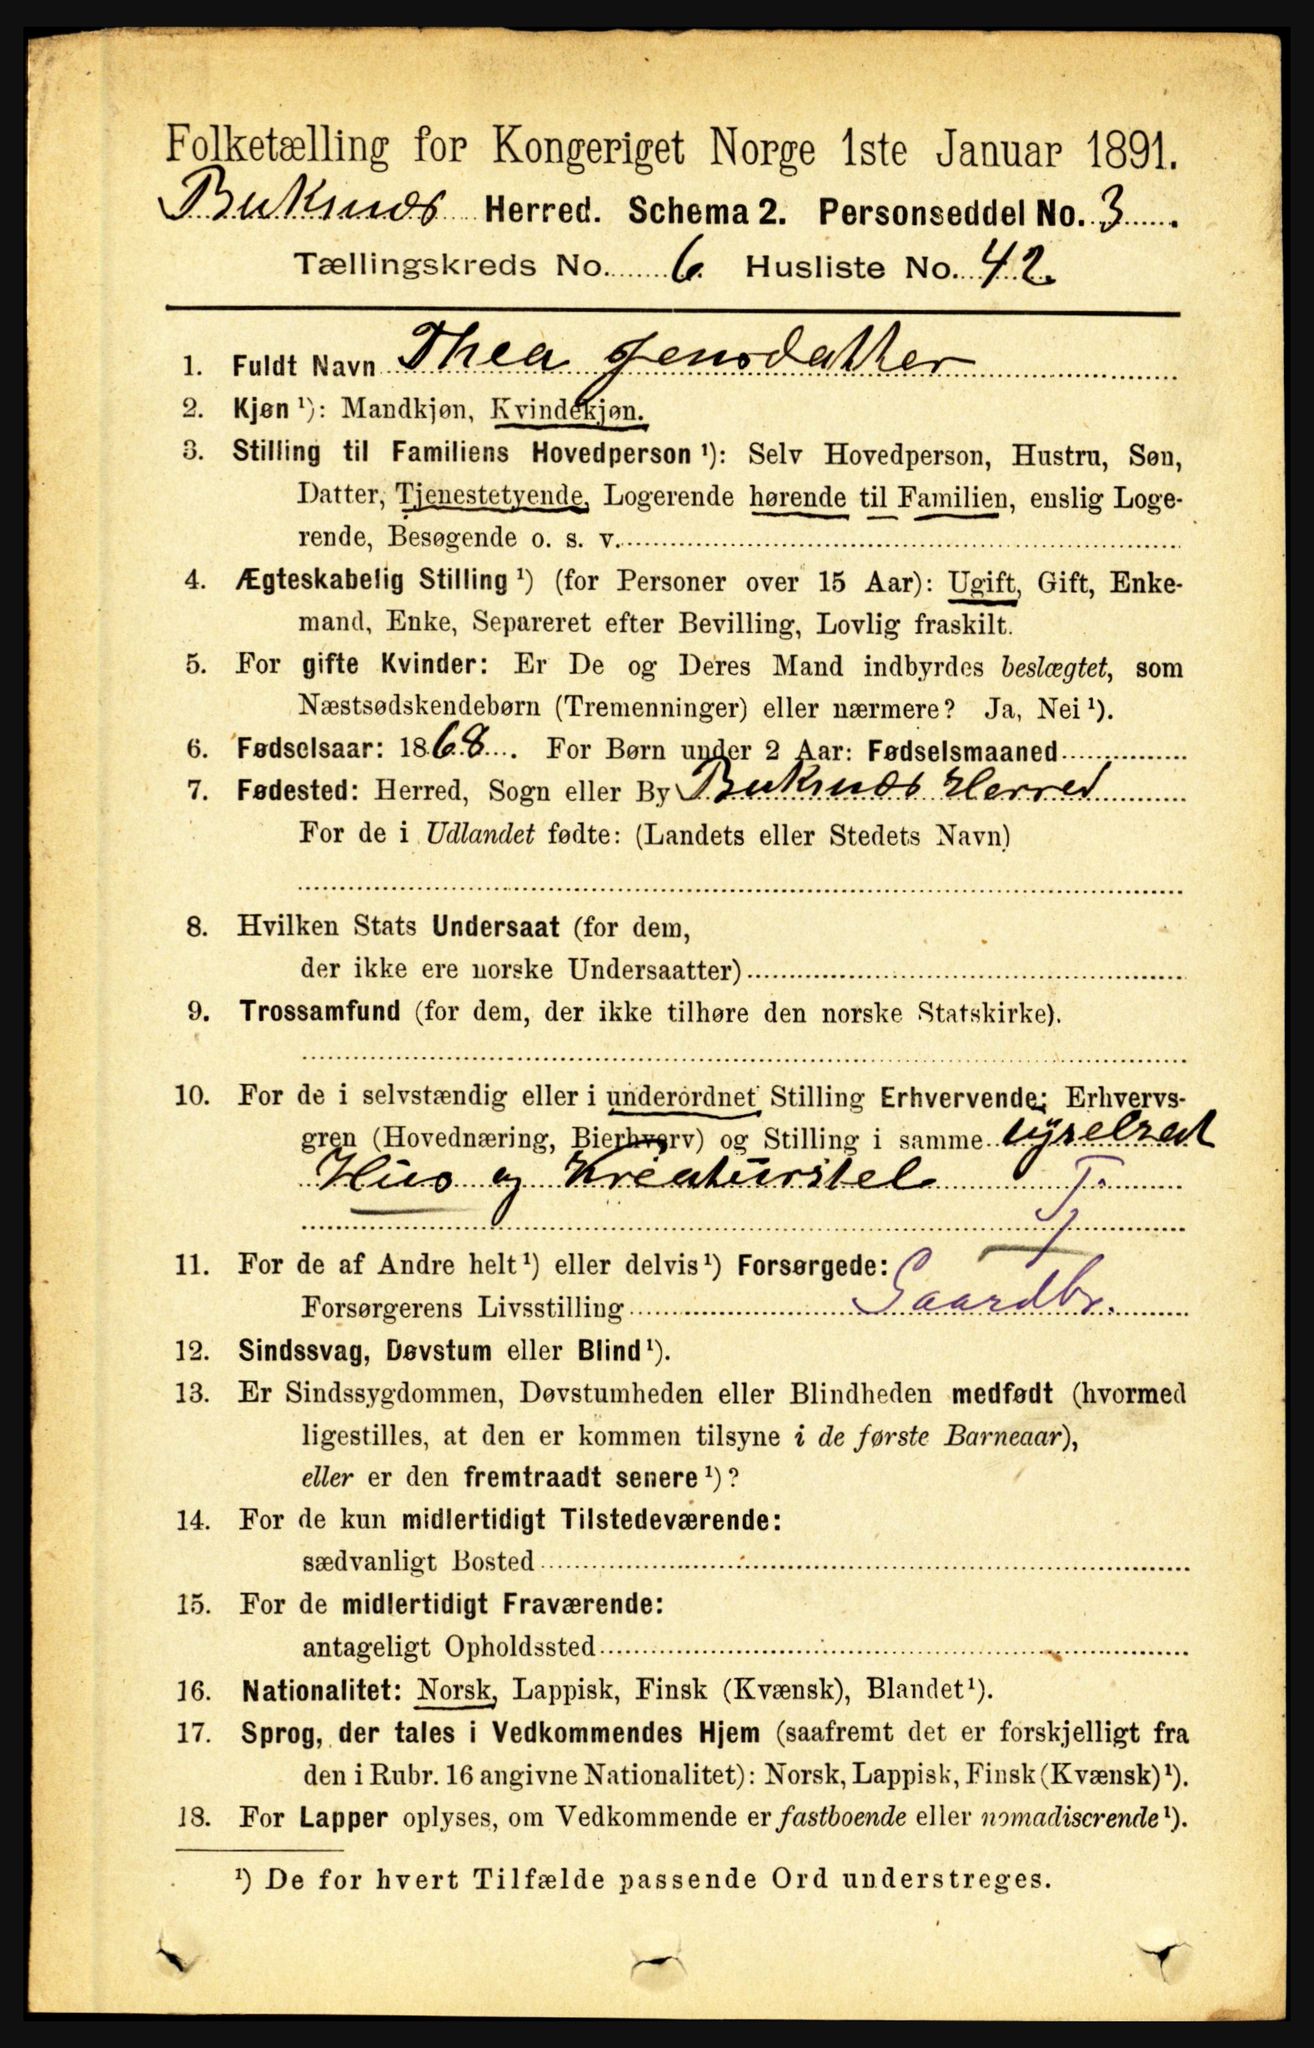 Folketælling for Kongeriget Norge 1ste Januar 1891.
Buksnæs Herred. Schema 2. Personseddel No. 3.
Tællingskreds No. 6. Husliste No. 42.
1. Fuldt Navn Thea Jensdatter
2. Kjøn ¹): Mandkjøn, Kvindekjøn.
3. Stilling til Familiens Hovedperson ¹): Selv Hovedperson, Hustru, Søn,
Datter, Tjenestetyende, Logerende hørende til Familien, enslig Loge-
rende, Besøgende o. s. v.
4. Ægteskabelig Stilling ¹) (for Personer over 15 Aar): Ugift, Gift, Enke-
mand, Enke, Separeret efter Bevilling, Lovlig fraskilt.
5. For gifte Kvinder: Er De og Deres Mand indbyrdes beslægtet, som
Næstsødskendebørn (Tremenninger) eller nærmere? Ja, Nei ¹).
6. Fødselsaar: 1868. For Børn under 2 Aar: Fødselsmaaned
7. Fødested: Herred, Sogn eller By Buksnæs Herred
For de i Udlandet fødte: (Landets eller Stedets Navn)
8. Hvilken Stats Undersaat (for dem,
der ikke ere norske Undersaatter)
9. Trossamfund (for dem, der ikke tilhøre den norske Statskirke).
10. For de i selvstændig eller i underordnet Stilling Erhvervende: Erhvervs-
gren (Hovednæring, Bierhverv) og Stilling i samme syselsat
Hus og Kreaturstel T.
11. For de af Andre helt ¹) eller delvis ¹) Forsørgede:
Forsørgerens Livsstilling Gaardbr.
12. Sindssvag, Døvstum eller Blind ¹).
13. Er Sindssygdommen, Døvstumheden eller Blindheden medfødt (hvormed
ligestilles, at den er kommen tilsyne i de første Barneaar),
eller er den fremtraadt senere ¹)?
14. For de kun midlertidigt Tilstedeværende:
sædvanligt Bosted
15. For de midlertidigt Fraværende:
antageligt Opholdssted
16. Nationalitet: Norsk, Lappisk, Finsk (Kvænsk), Blandet ¹).
17. Sprog, der tales i Vedkommendes Hjem (saafremt det er forskjelligt fra
den i Rubr. 16 angivne Nationalitet): Norsk, Lappisk, Finsk (Kvænsk) ¹).
18. For Lapper oplyses, om Vedkommende er fastboende eller nomadiserende ¹).
¹) De for hvert Tilfælde passende Ord understreges.